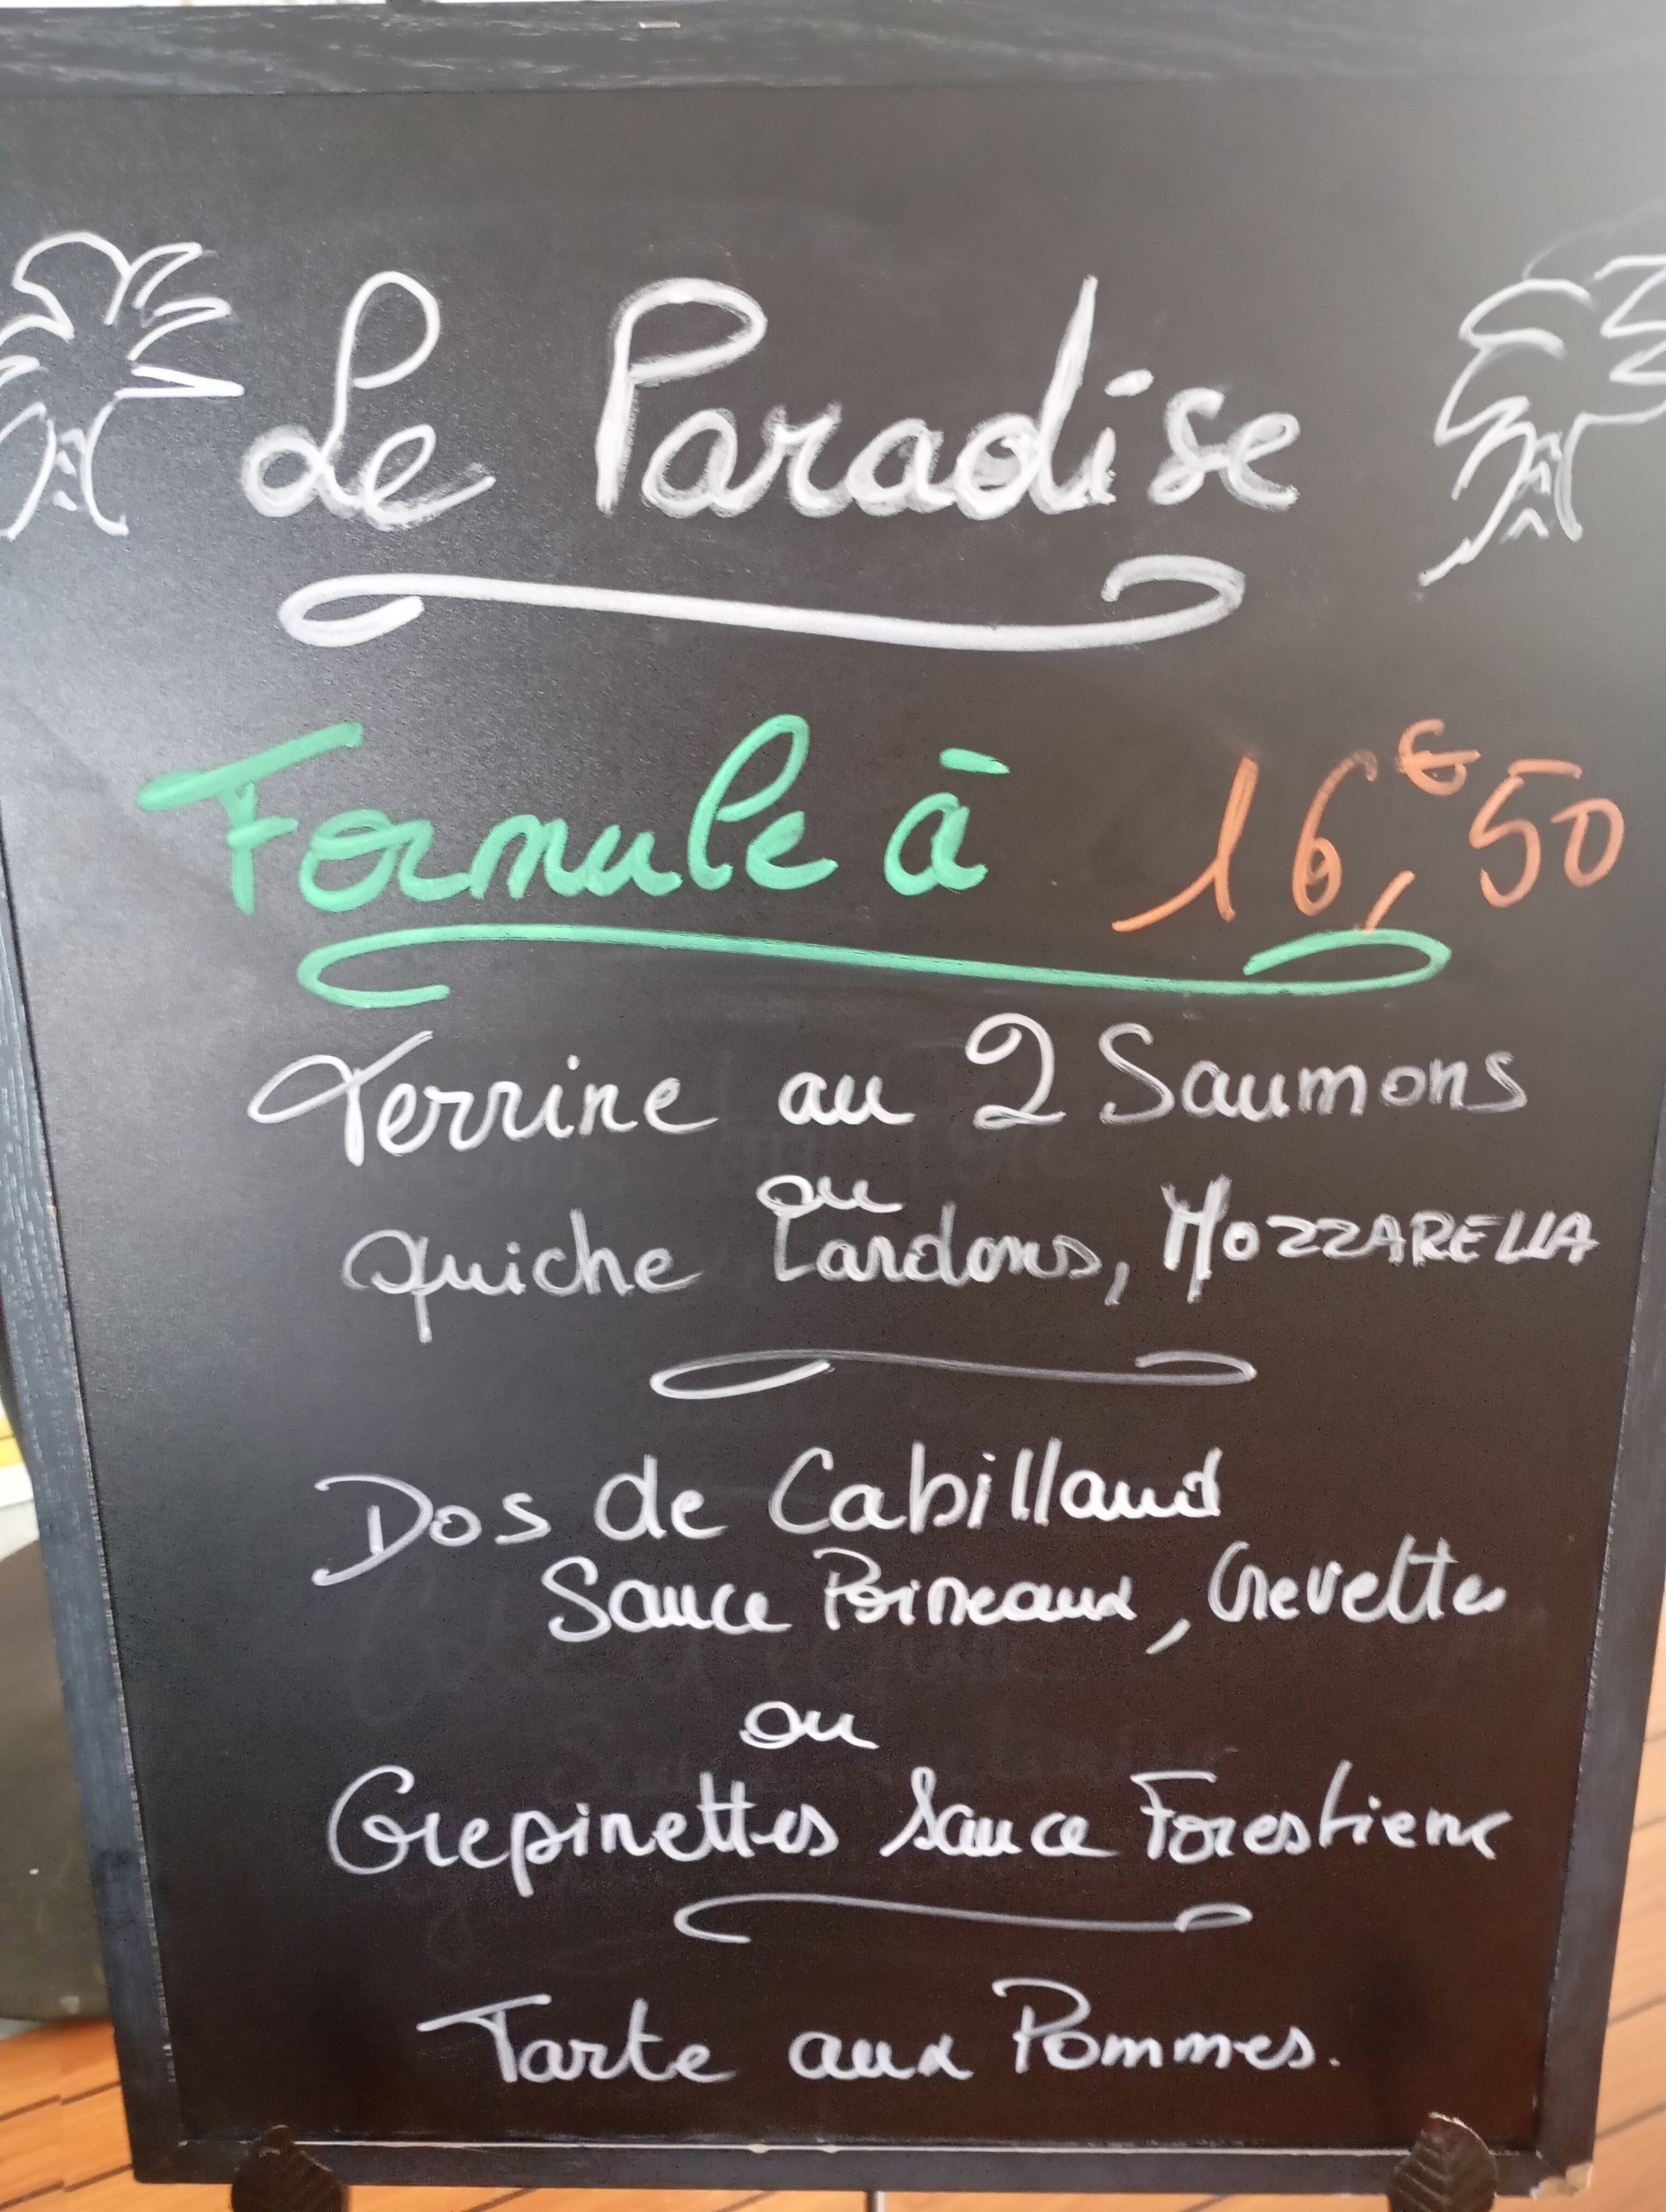 Le Paradise
Formule à 16,€50
Terrine au 2 Saumons
ou
quiche Lardons, MOZZARELLA
Dos de Cabillaud
Sauce Poireaux, Crevettes
ou
Crepinettes Sauce Forestiere
Tarte aux Pommes.